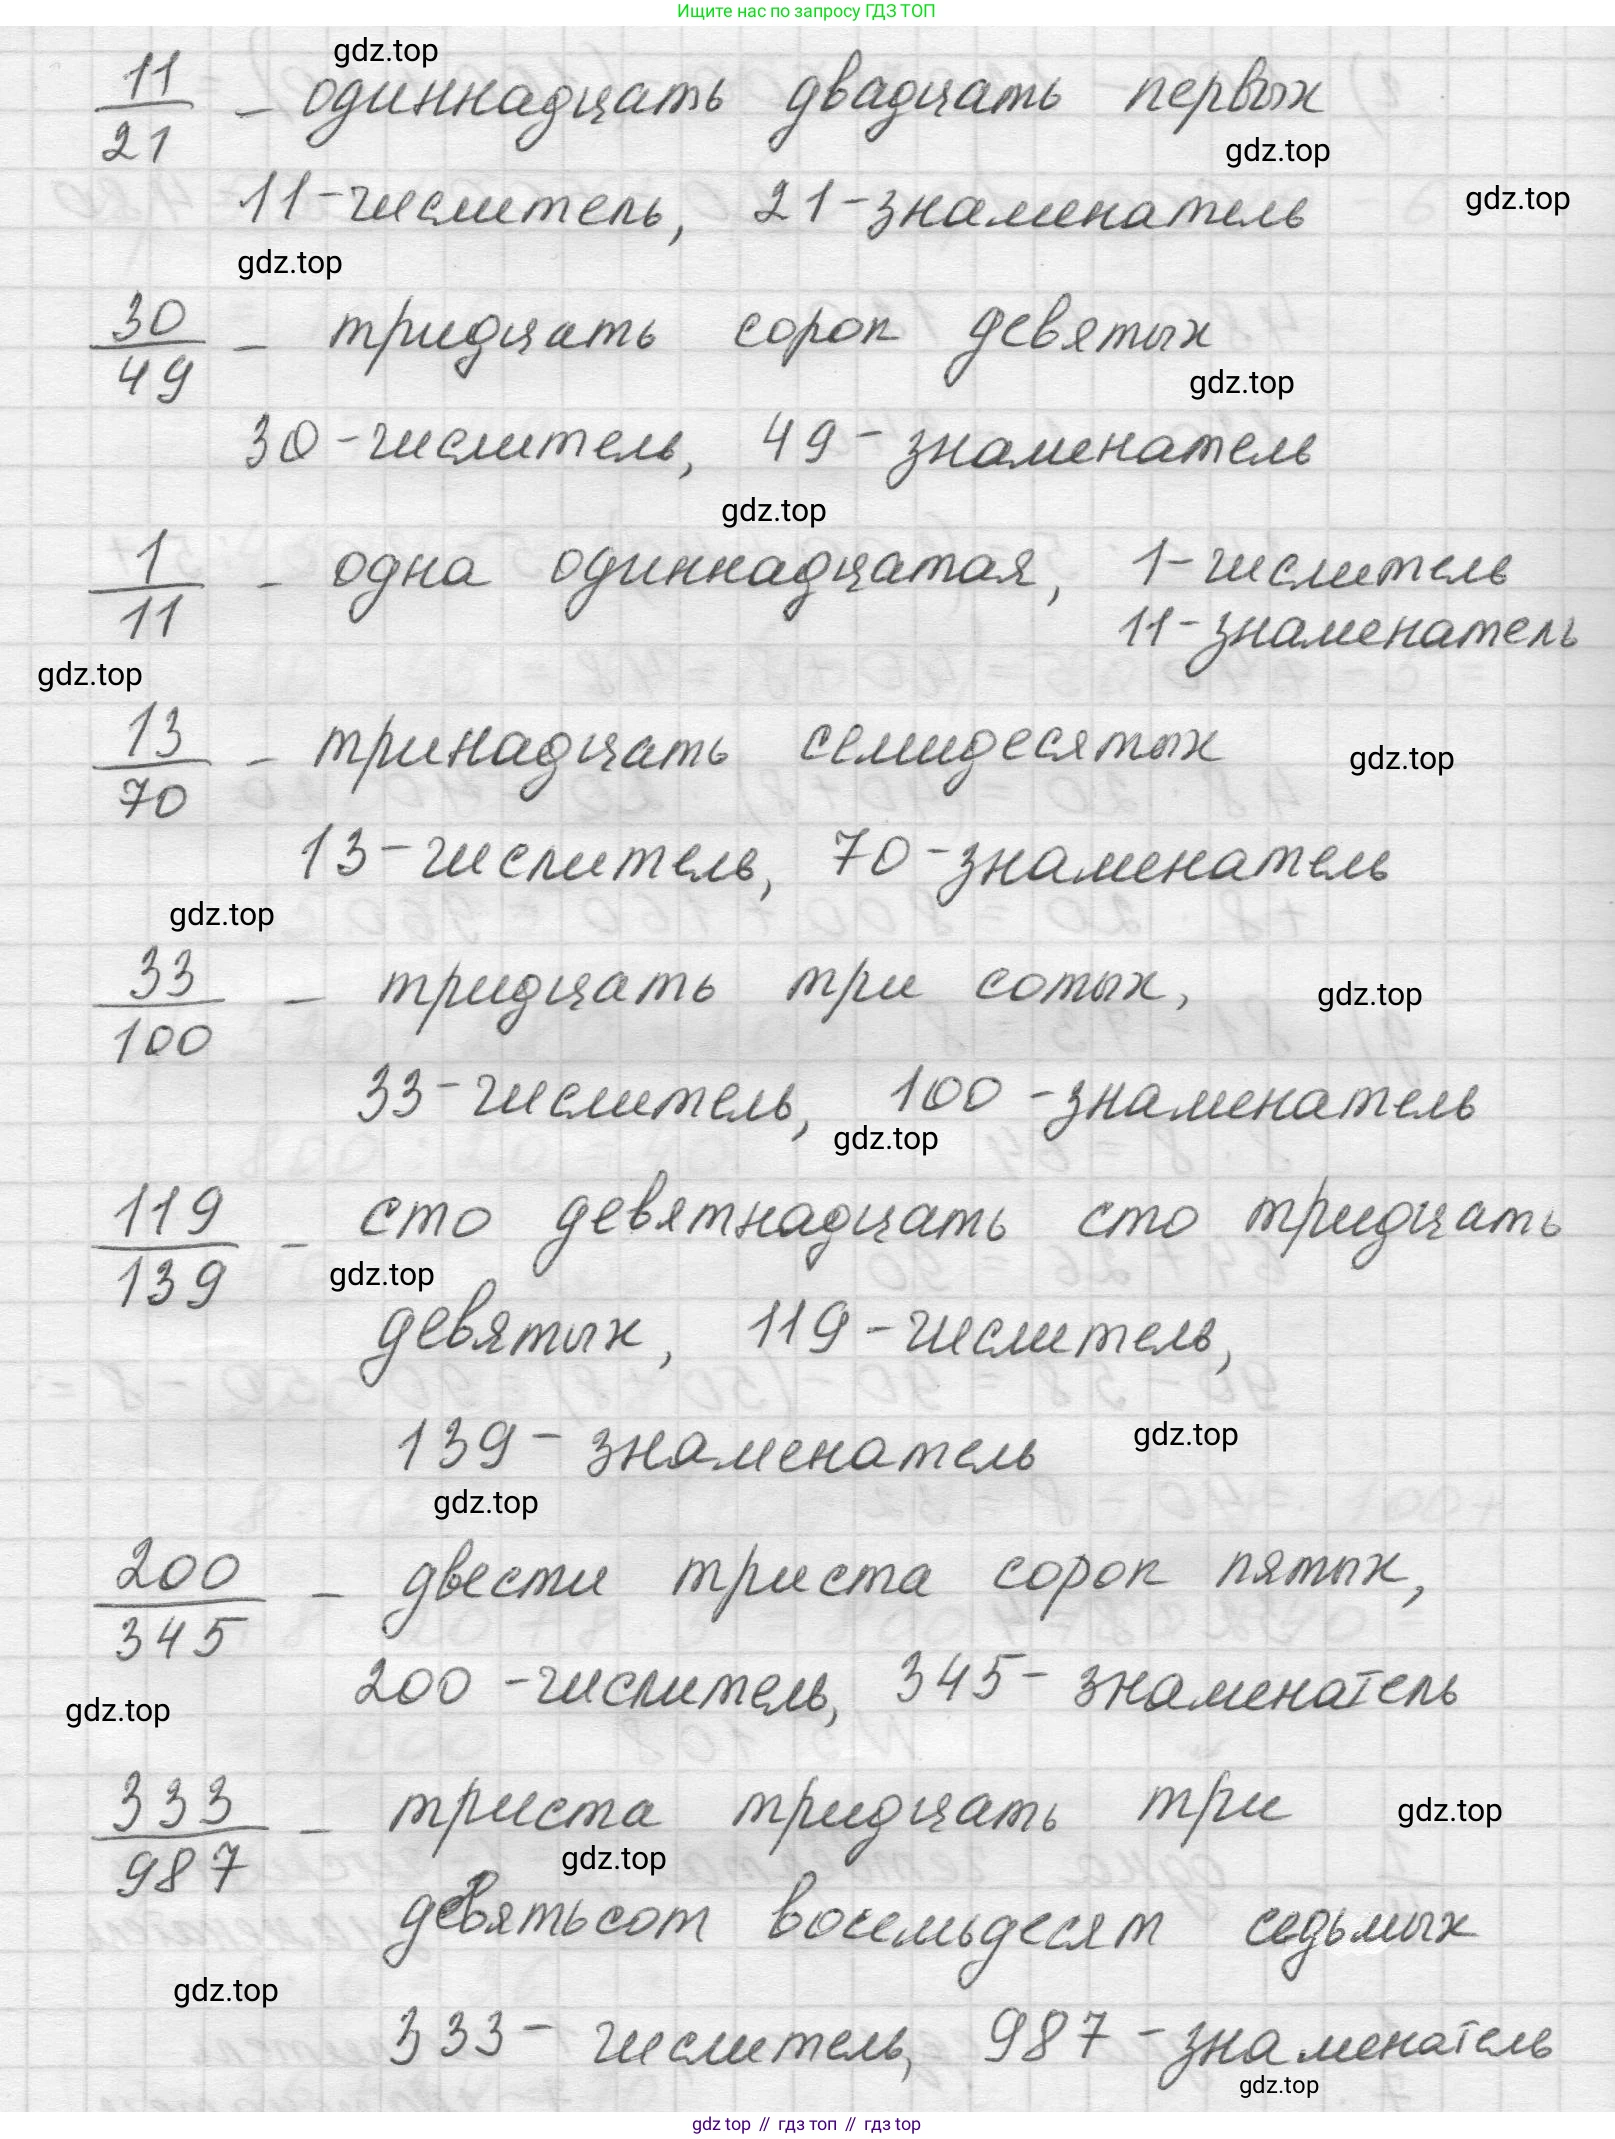 Ищите нас по запросу ГДЗ ТОП
gdz.top
11/21 – одиннадцать двадцать первых
gdz.top
11-числитель, 21-знаменатель
gdz.top
gdz.top
30/49 – тридцать сорок девятых
gdz.top
30-числитель, 49-знаменатель
gdz.top
1/11 – одна одиннадцатая, 1-числитель
11-знаменатель
gdz.top
13/70 – тринадцать семидесятых
gdz.top
13-числитель, 70-знаменатель
gdz.top
33/100 – тридцать три сотых,
gdz.top
33-числитель, 100-знаменатель
gdz.top
119/139 – сто девятнадцать сто тридцать
gdz.top
девятых, 119-числитель,
139-знаменатель
gdz.top
gdz.top
200/345 – двести триста сорок пятых,
200-числитель, 345-знаменатель
gdz.top
333/987 – триста тридцать три
gdz.top
gdz.top
девятьсот восемьдесят седьмых
gdz.top
333-числитель, 987-знаменатель
gdz.top
gdz top // гдз топ // гдз top